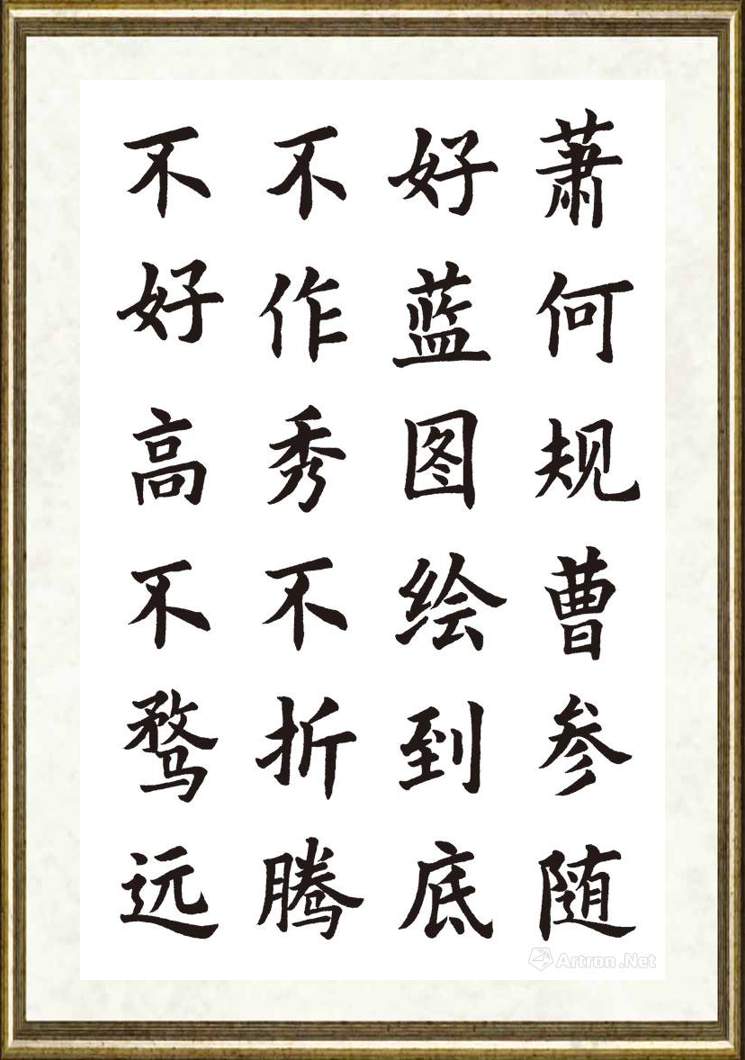 萧何规曹参随
好蓝图绘到底
不作秀不折腾
不好高不骛远
Artron.Net